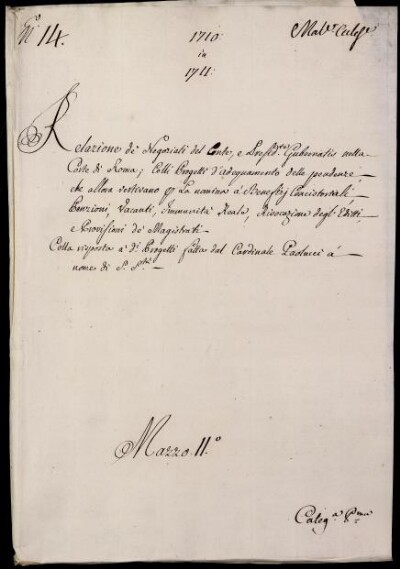 N.º 14.
1710.
in
1711.
Relazione de' Negoziati del Conte, e Presid.te Gubernatis nella
Corte di Roma; Colli Progetti d'adeguamento delle pendenze
che allora vertevano per La nomina a' Beneficj Concistoriali
Panzioni, Vacanti, Immunità Reale, Rivocazione degl' Editti,
e Provisioni de' Magistrati
Colla risposta a' d.i Progetti fatta dal Cardinale Paolucci a
nome di S. S.tà
Mazzo 11.º
Categ.a P.ma